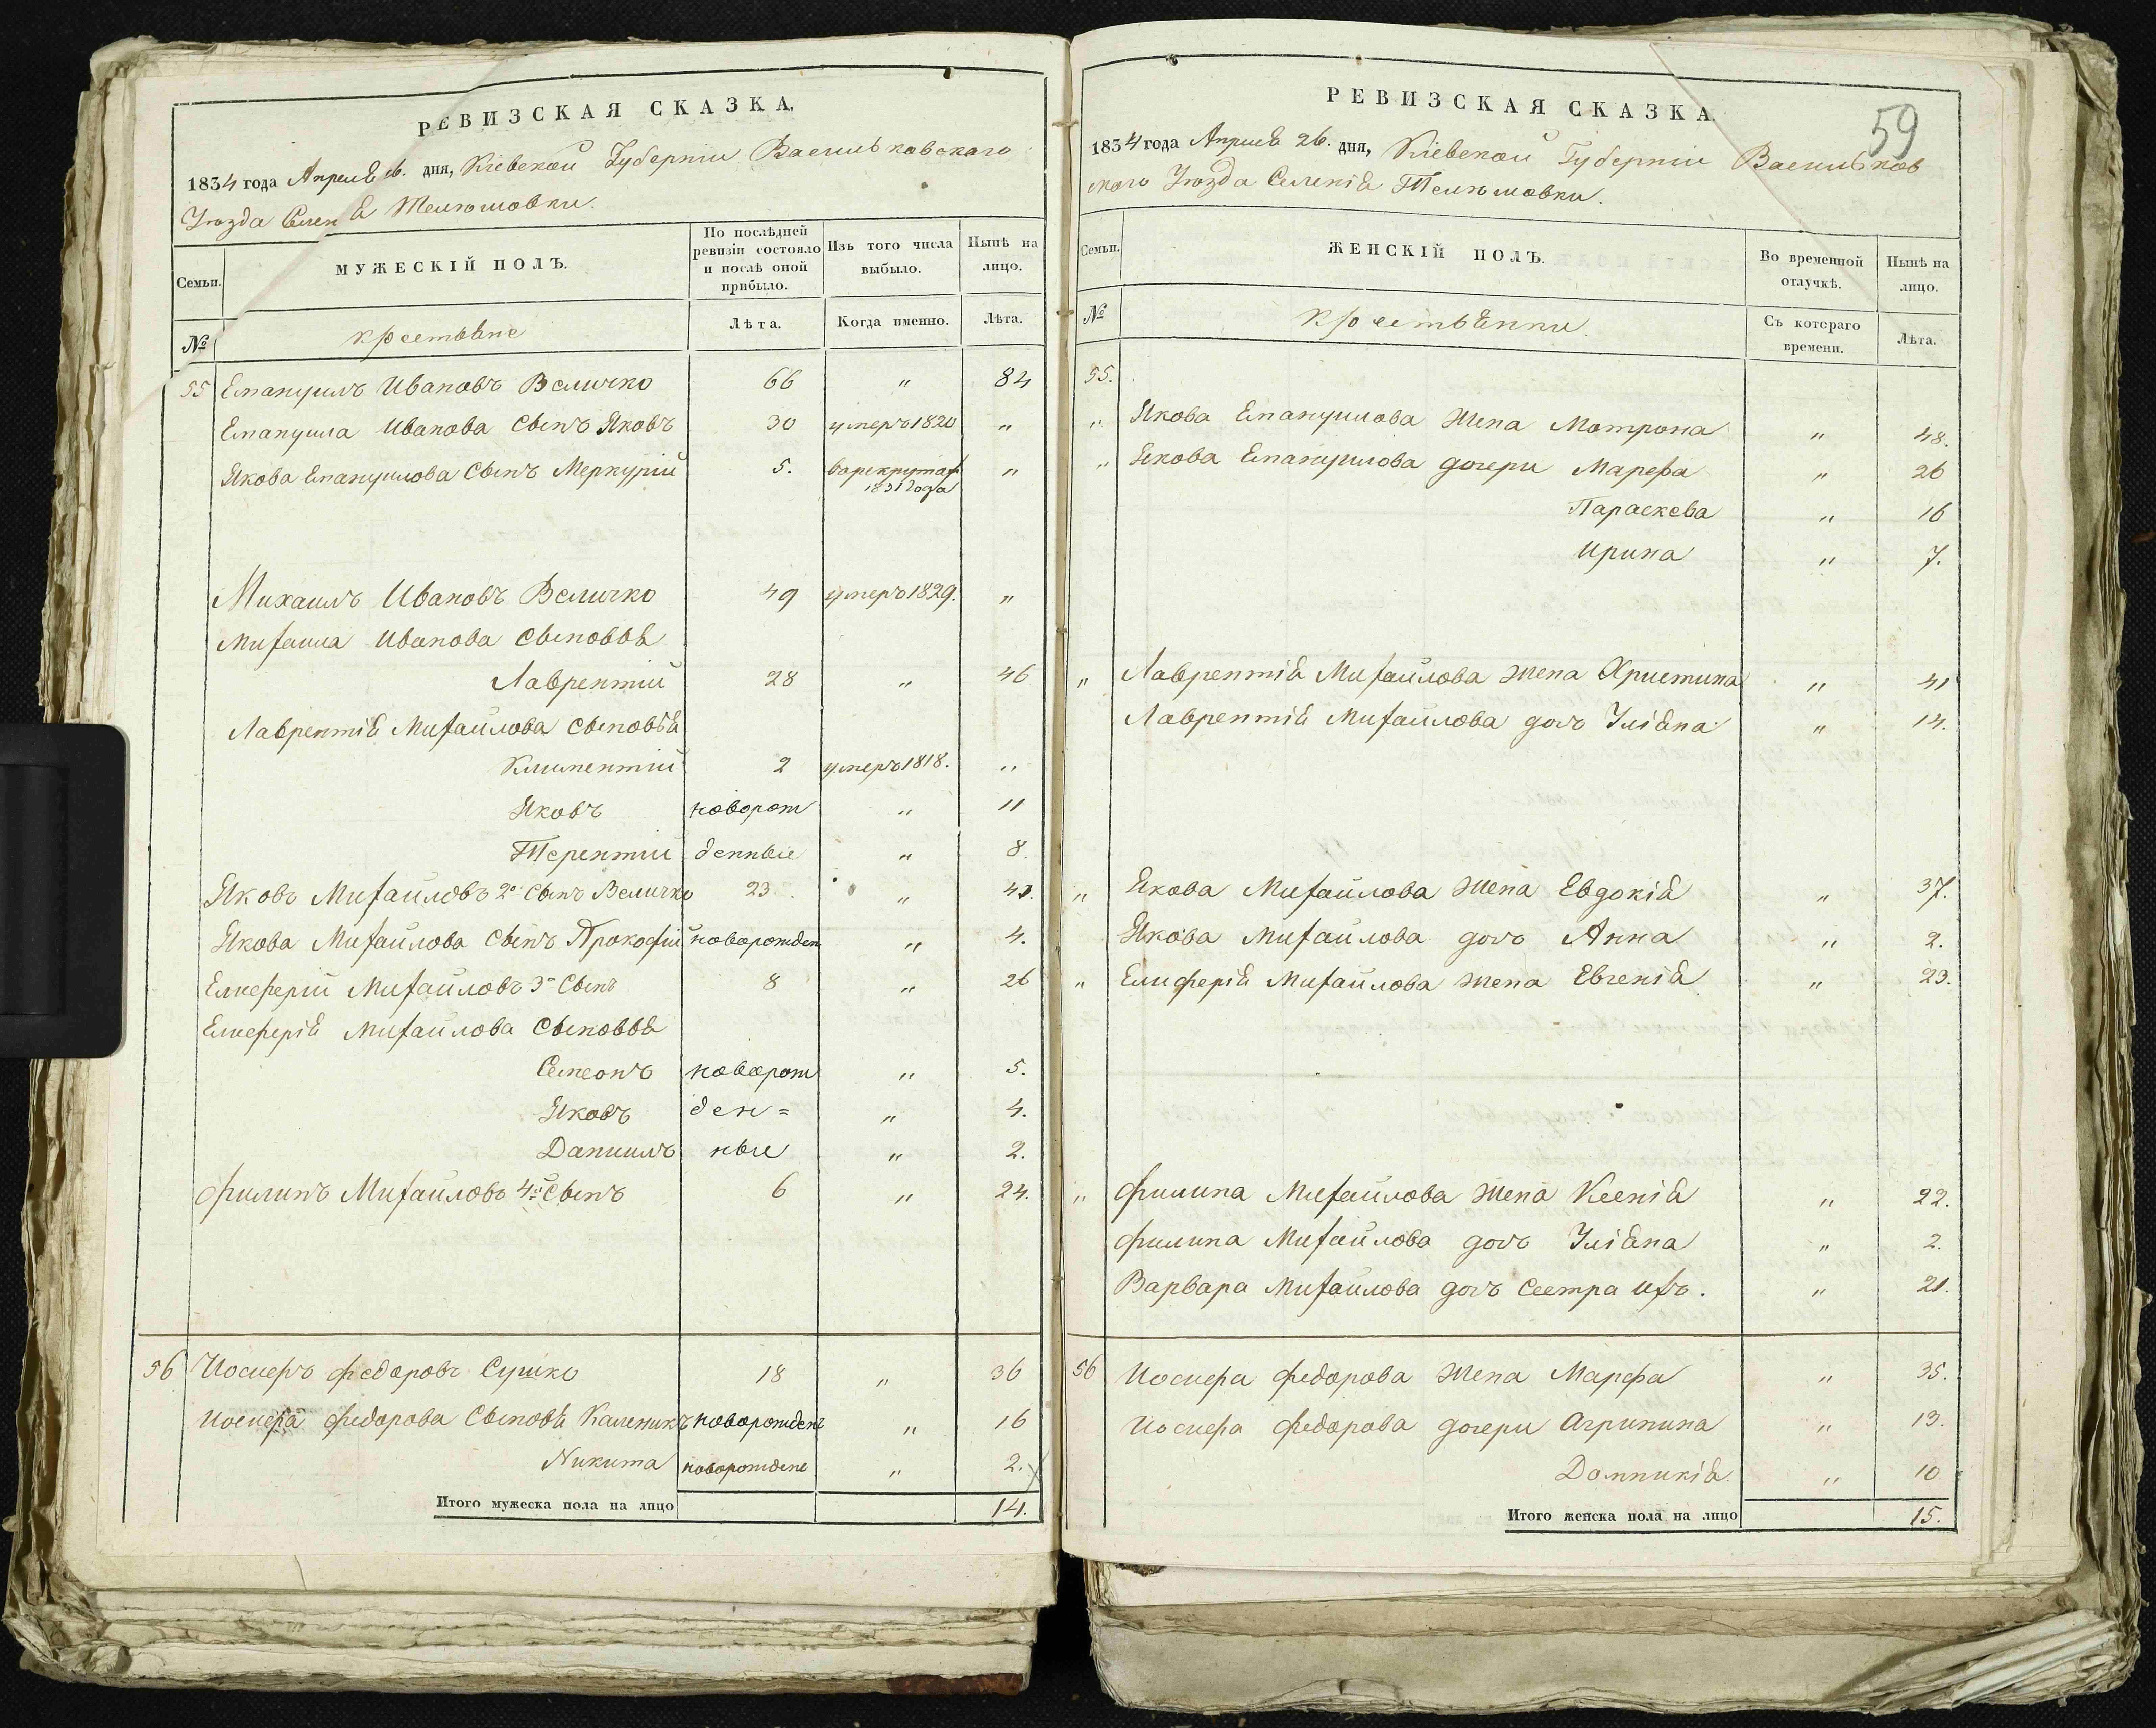 РЕВИЗСКАЯ СКАЗКА.
1834 года Апреля 26. дня, Кіевской Губерніи Васильковскаго
Уѣзда Селен я Телѣшовки.
Семьи.
МУЖЕСКІЙ ПОЛЪ.
По послѣдней ревизіи состояло и послѣ оной прибыло.
Изъ того числа выбыло.
Нынѣ на лицо.
№
крестьяне
Лѣта.
Когда именно.
Лѣта.
55 Емануилъ Ивановъ Величко 66 " 84
Емануила Иванова Сынъ Яковъ 30 умеръ 1820 "
Якова Емануилова Сынъ Меркурій 5. "
1831 года
Михаилъ Ивановъ Величко 49 умеръ 1829. "
Михаила Иванова Сыновья
Лаврентій 28 " 46
Лаврентія Михайлова Сыновья
Климентій 2 умеръ 1818. "
Яковъ новорож " 11
Терентій денные " 8.
Яковъ Михайловъ 2й Сынъ Величко 23. " 41.
Якова Михайлова Сынъ Прокофій новорожден " 4.
Елеферій Михайловъ 3й Сынъ 8 " 26
Елеферія Михайлова Сыновья
Семеонъ новорож " 5.
Яковъ ден= " 4.
Даниилъ ные " 2.
Филипъ Михайловъ 4й Сынъ 6 " 24.
56 Иосифъ Федоровъ Сушко 18 " 36
Иосифа Федорова Сыновья Каленикъ новорожден " 16
Никита новорождене " 2.
Итого мужеска пола на лицо 14.
РЕВИЗСКАЯ СКАЗКА.
59
1834 года Апреля 26. дня, Кіевской Губерніи Васильков
скаго Уѣзда Селенія Телѣшовки.
Семьи.
ЖЕНСКІЙ ПОЛЪ.
Во временной отлучкѣ.
Нынѣ на лицо.
№
крестьянки.
Съ котораго времени.
Лѣта.
55.
" Якова Емануилова жена Матрона " 48.
" Якова Емануилова дочери Марефа " 26
Параскева " 16
Ирина " 7.
" Лаврентія Михайлова жена Христина " 41
Лаврентія Михайлова дочь Уліяна " 14.
" Якова Михайлова жена Евдокія " 37.
Якова Михайлова дочь Анна " 2.
" Елиферія Михайлова жена Евгенія " 23.
" Филипа Михайлова жена Ксенія " 22.
Филипа Михайлова дочь Уліяна " 2.
Варвара Михайлова дочь Сестра ихъ. " 21.
56 Иосифа Федорова жена Марфа " 35.
Иосифа Федорова дочери Агрипина " 13.
Домникія " 10
Итого женска пола на лицо 15.